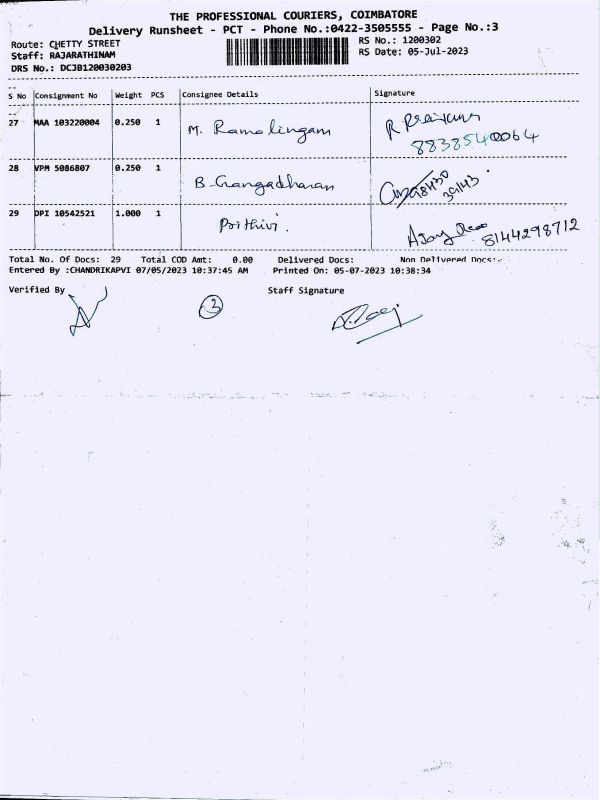 THE PROFESSIONAL COURIERS, COIMBATORE
Delivery Runsheet - PCT - Phone No.:0422-3505555 - Page No.:3
Route: CHETTY STREET RS No.: 1200302
Staff: RAJARATHINAM RS Date: 05-Jul-2023
DRS No.: DCJB120030203
S No Consignment No Weight PCS Consignee Details Signature
27 MAA 103220004 0.250 1 M. Ramalingam R
8838540064
28 VPM 5086807 0.250 1 B. Gangadharan
39143
29 DPI 10542521 1.000 1 Prithivi. Ajay 8144298712
Total No. Of Docs: 29 Total COD Amt: 0.00 Delivered Docs: Non Delivered Docs:
Entered By :CHANDRIKAPVI 07/05/2023 10:37:45 AM Printed On: 05-07-2023 10:38:34
Verified By 3 Staff Signature